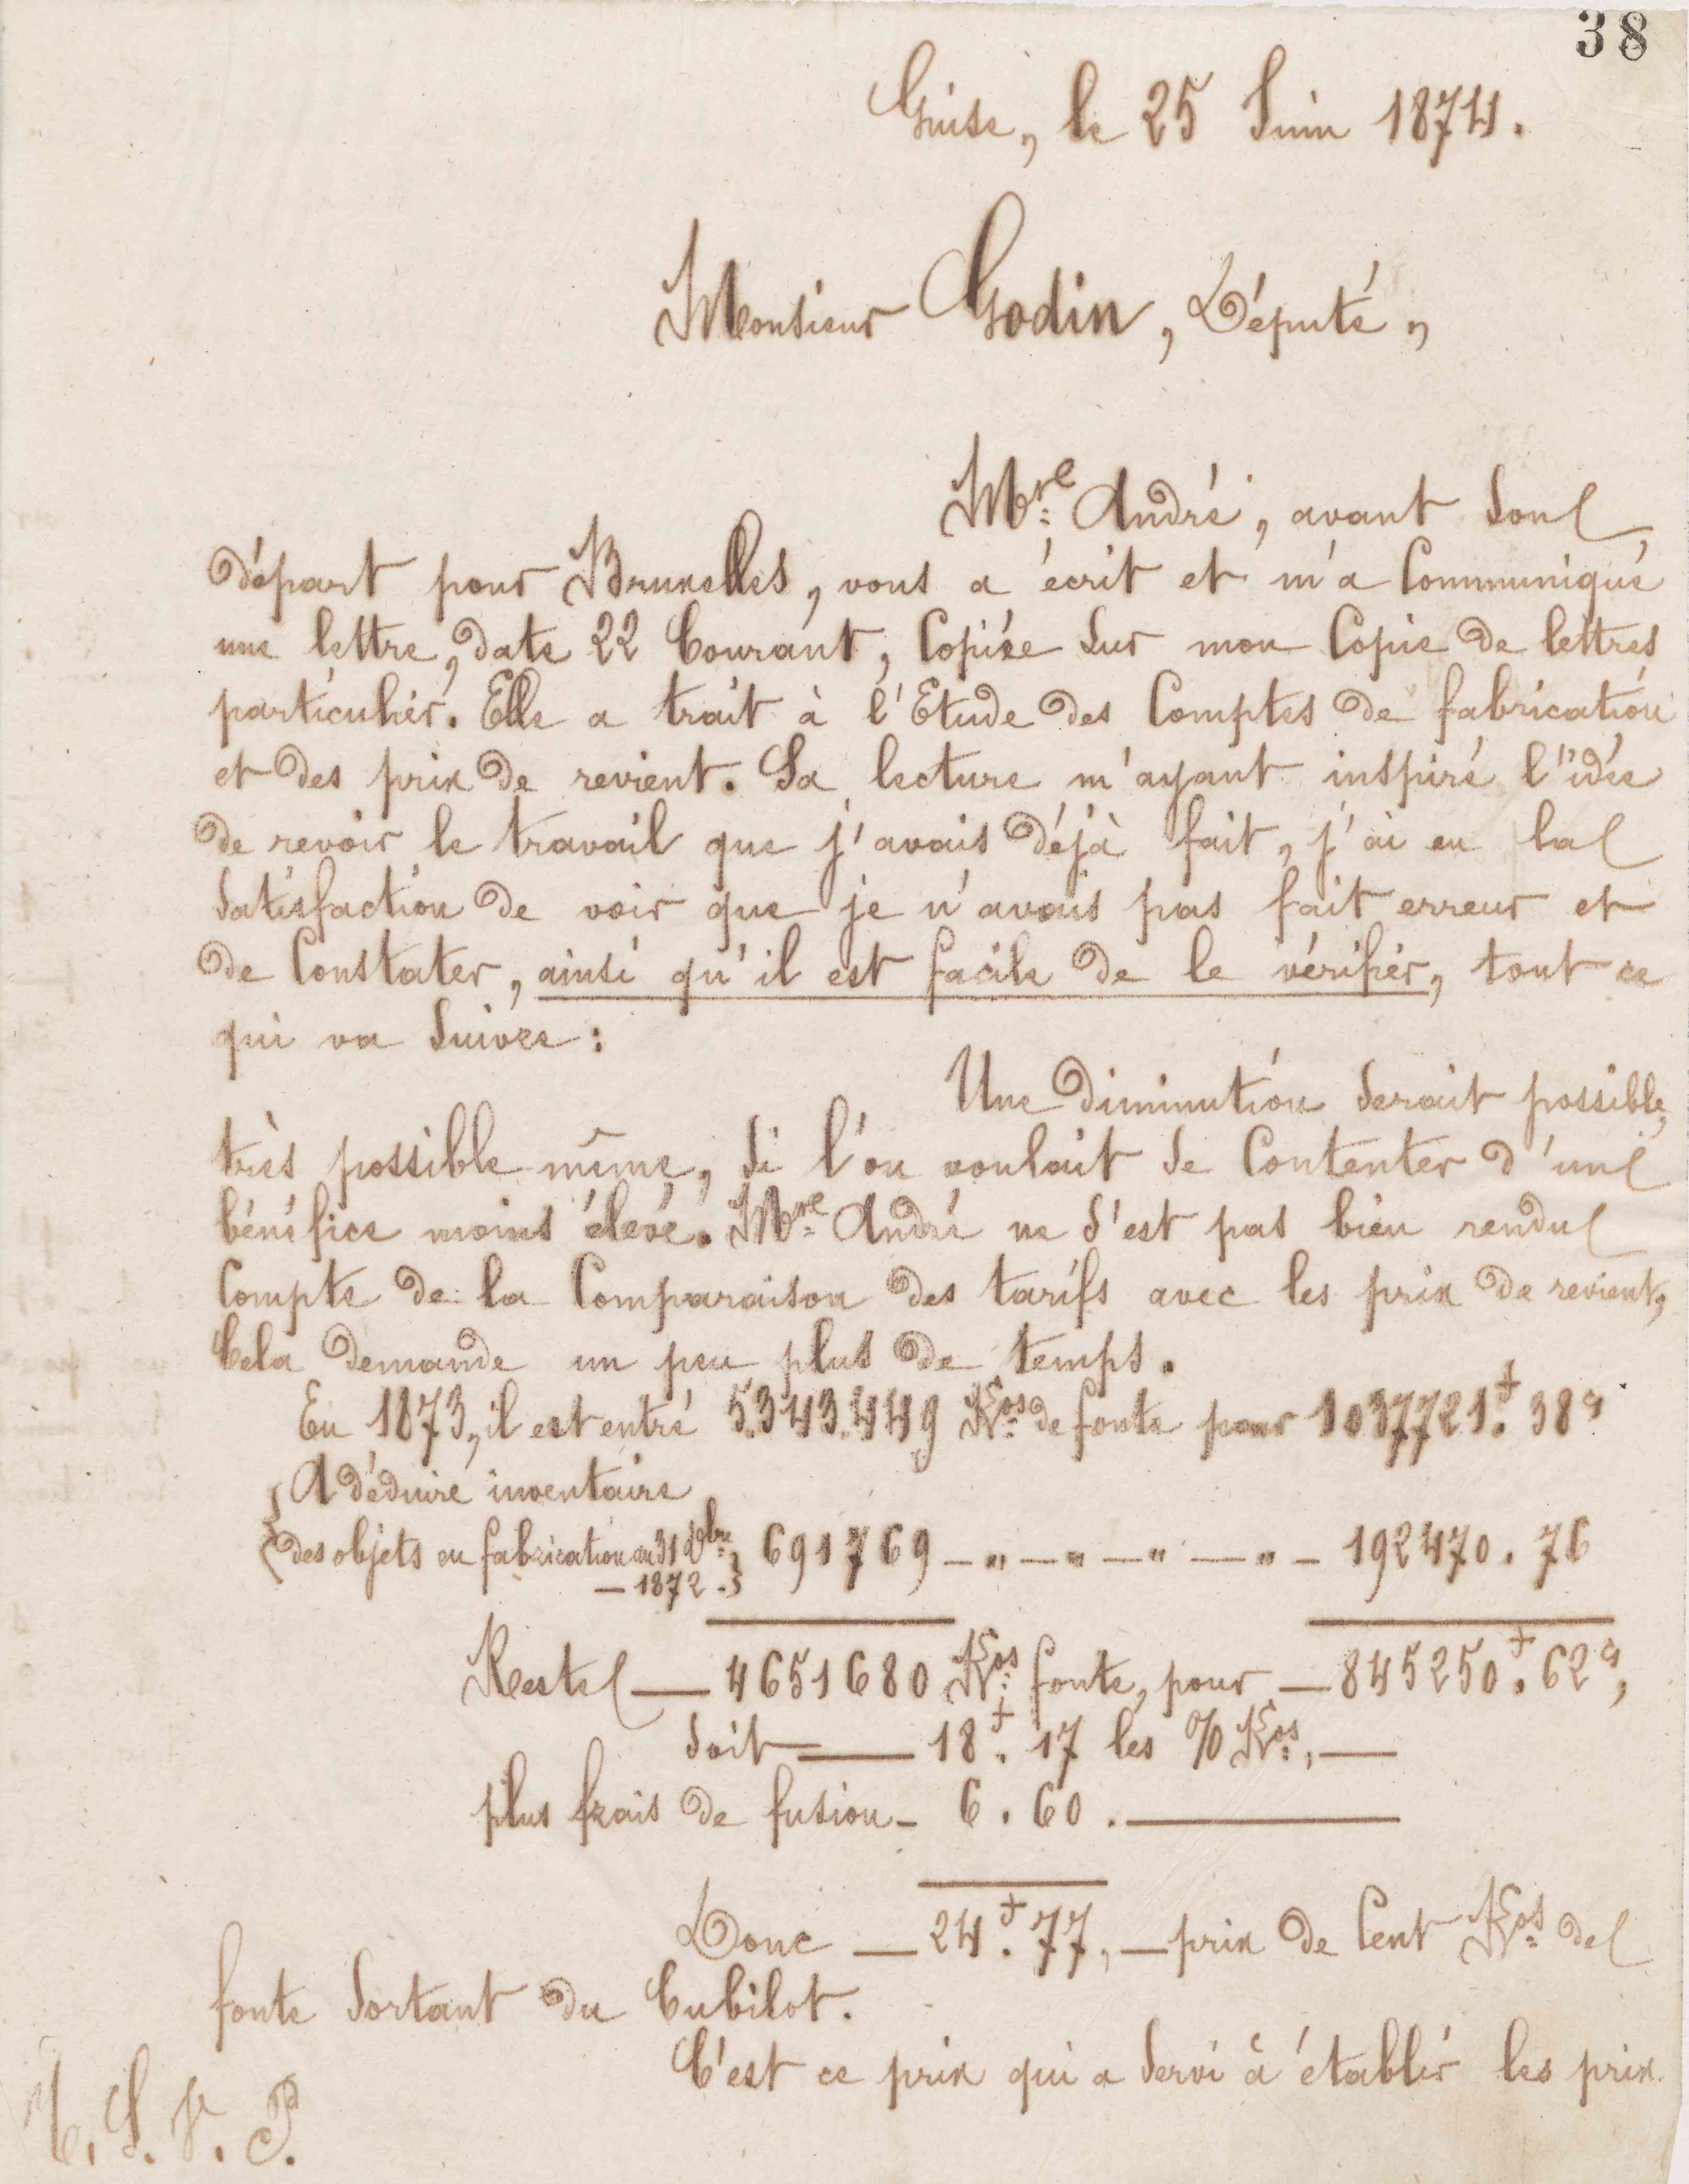 38
Guise, le 25 Juin 1874.
Monsieur Godin, Député,
Mre André, avant son
départ pour Bruxelles, vous a écrit et m'a communiqué
une lettre, date 22 Courant, Copiée sur mon Copie de lettres
particulier. Elle a trait à l'Etude des Comptes de fabrication
et des prix de revient. Sa lecture m'ayant inspiré l'idée
de revoir le travail que j'avais déjà fait, j'ai eu la
satisfaction de voir que je n'avais pas fait erreur et
de Constater, ainsi qu'il est facile de le vérifier, tout ce
qui va suivre :
Une diminution serait possible,
très possible même, si l'on voulait se Contenter d'un
bénéfice moins élevé. Mre André ne s'est pas bien rendu
Compte de la Comparaison des tarifs avec les prix de revient,
Cela demande un peu plus de temps.
En 1873, il est entré 5.343.449 Kos de fonte pour 1037721.f 38c
A déduire inventaire
des objets en fabrication au 31 Xbre } 691769 — " — " — " — " — 192470. 76
— 1872 -
Reste — 4651680 Kos fonte, pour — 845250.f 62c,
Soit — 18.f 17 les % Kos, —
plus frais de fusion - 6. 60. —
Donc — 24.f 77, — prix de Cent Kos de
fonte sortant du Cubilot.
C'est ce prix qui a servi à établir les prix
T. S. V. P.